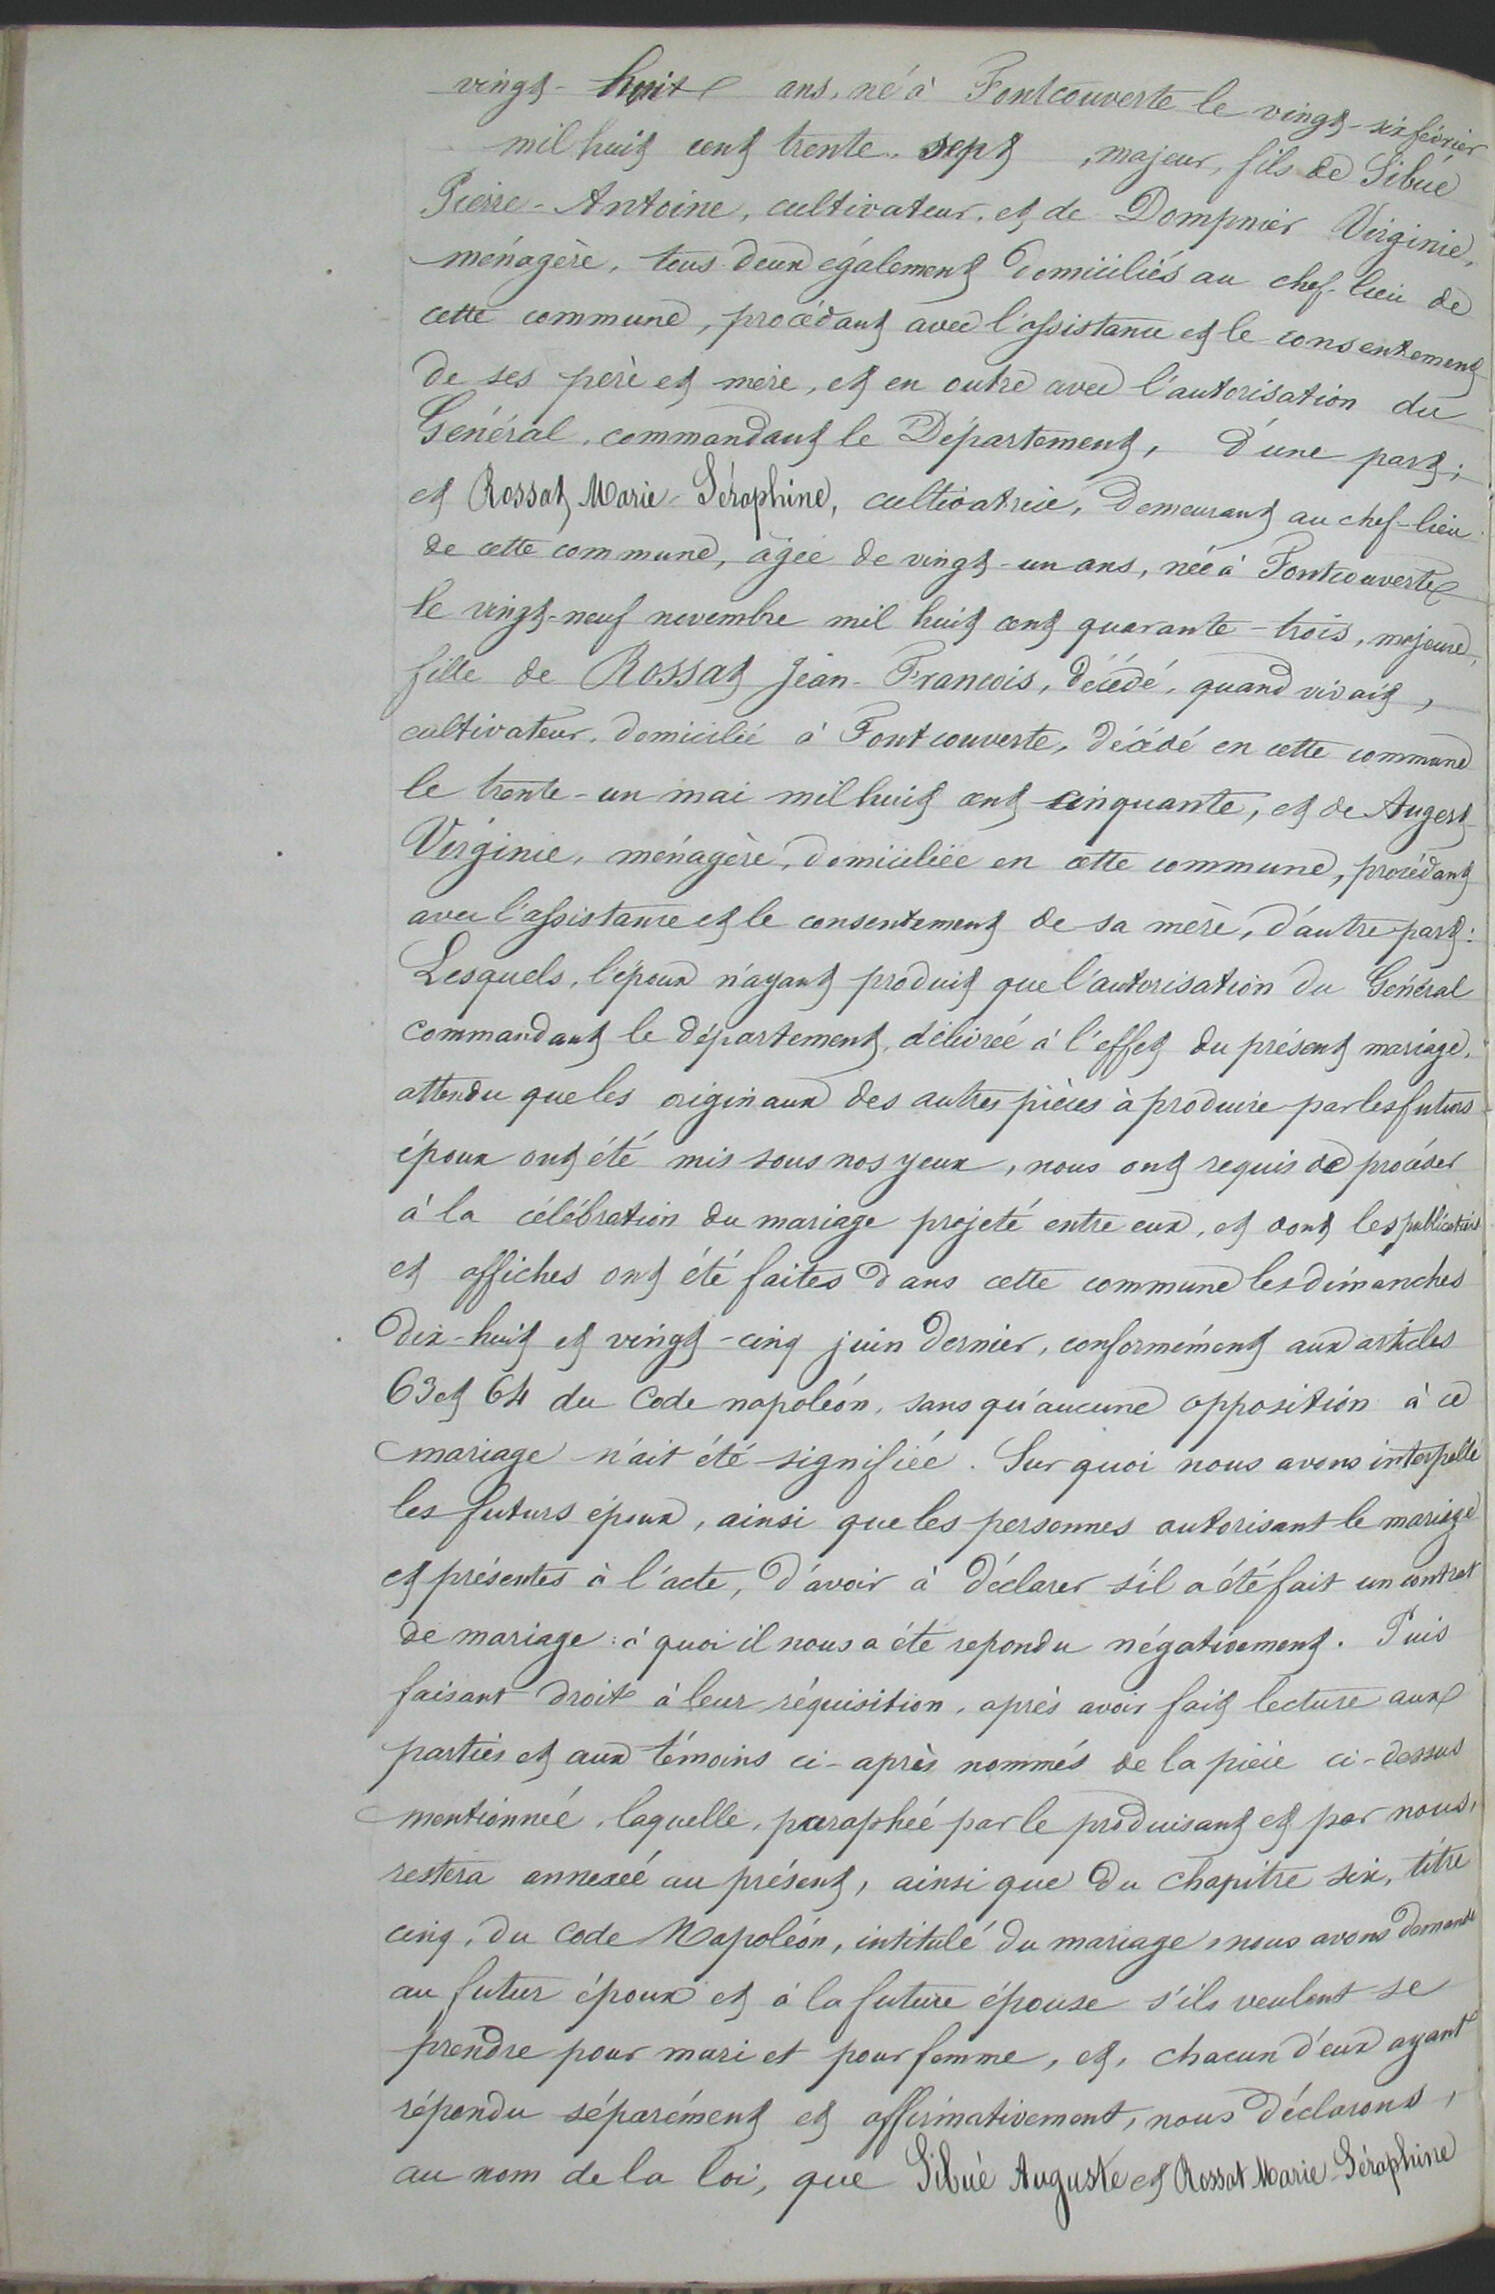 vingt-huit ans, né à Fontcouverte le vingt-six février
mil huit cent trente-sept, majeur, fils de Sibué
Pierre-Antoine, cultivateur, et de Dompnier Virginie,
ménagère, tous deux également domiciliés au chef-lieu de
cette commune, procédant avec l'assistance et le consentement
de ses père et mère, et en outre avec l'autorisation du
Général, commandant le Département, d'une part;
et Rossat Marie-Séraphine, cultivatrice, demeurant au chef-lieu
de cette commune, âgée de vingt-un ans, née à Fontcouverte
le vingt-neuf novembre mil huit cent quarante-trois, majeure,
fille de Rossat Jean-François, décédé, quand vivait,
cultivateur, domicilié à Fontcouverte, décédé en cette commune
le trente-un mai mil huit cent cinquante, et de Augert
Virginie, ménagère, domiciliée en cette commune, procédant
avec l'assistance et le consentement de sa mère, d'autre part:
Lesquels, l'époux n'ayant produit que l'autorisation du Général
commandant le département, délivrée à l'effet du présent mariage,
attendu que les originaux des autres pièces à produire par les futurs
époux ont été mis sous nos yeux, nous ont requis de procéder
à la célébration du mariage projeté entre eux, et dont les publications
et affiches ont été faites dans cette commune les dimanches
dix-huit et vingt-cinq juin dernier, conformément aux articles
63 et 64 du Code napoléon, sans qu'aucune opposition à ce
mariage n'ait été signifiée. Sur quoi nous avons interpellé
les futurs époux, ainsi que les personnes autorisant le mariage
et présentes à l'acte, d'avoir à déclarer s'il a été fait un contrat
de mariage: à quoi il nous a été repondu négativement. Puis
faisant droit à leur réquisition, après avoir fait lecture aux
parties et aux témoins ci-après nommés de la pièce ci-dessus
mentionnée, laquelle, paraphée par le produisant et par nous,
restera annexée au présent, ainsi que du chapitre six, titre
cinq, du Code Napoléon, intitulé du mariage, nous avons demandé
au futur époux et à la future épouse s'ils veulent se
prendre pour mari et pour femme, et, chacun d'eux ayant
répondu séparément et affirmativement, nous déclarons,
au nom de la loi, que Sibué Auguste et Rossat Marie-Séraphine